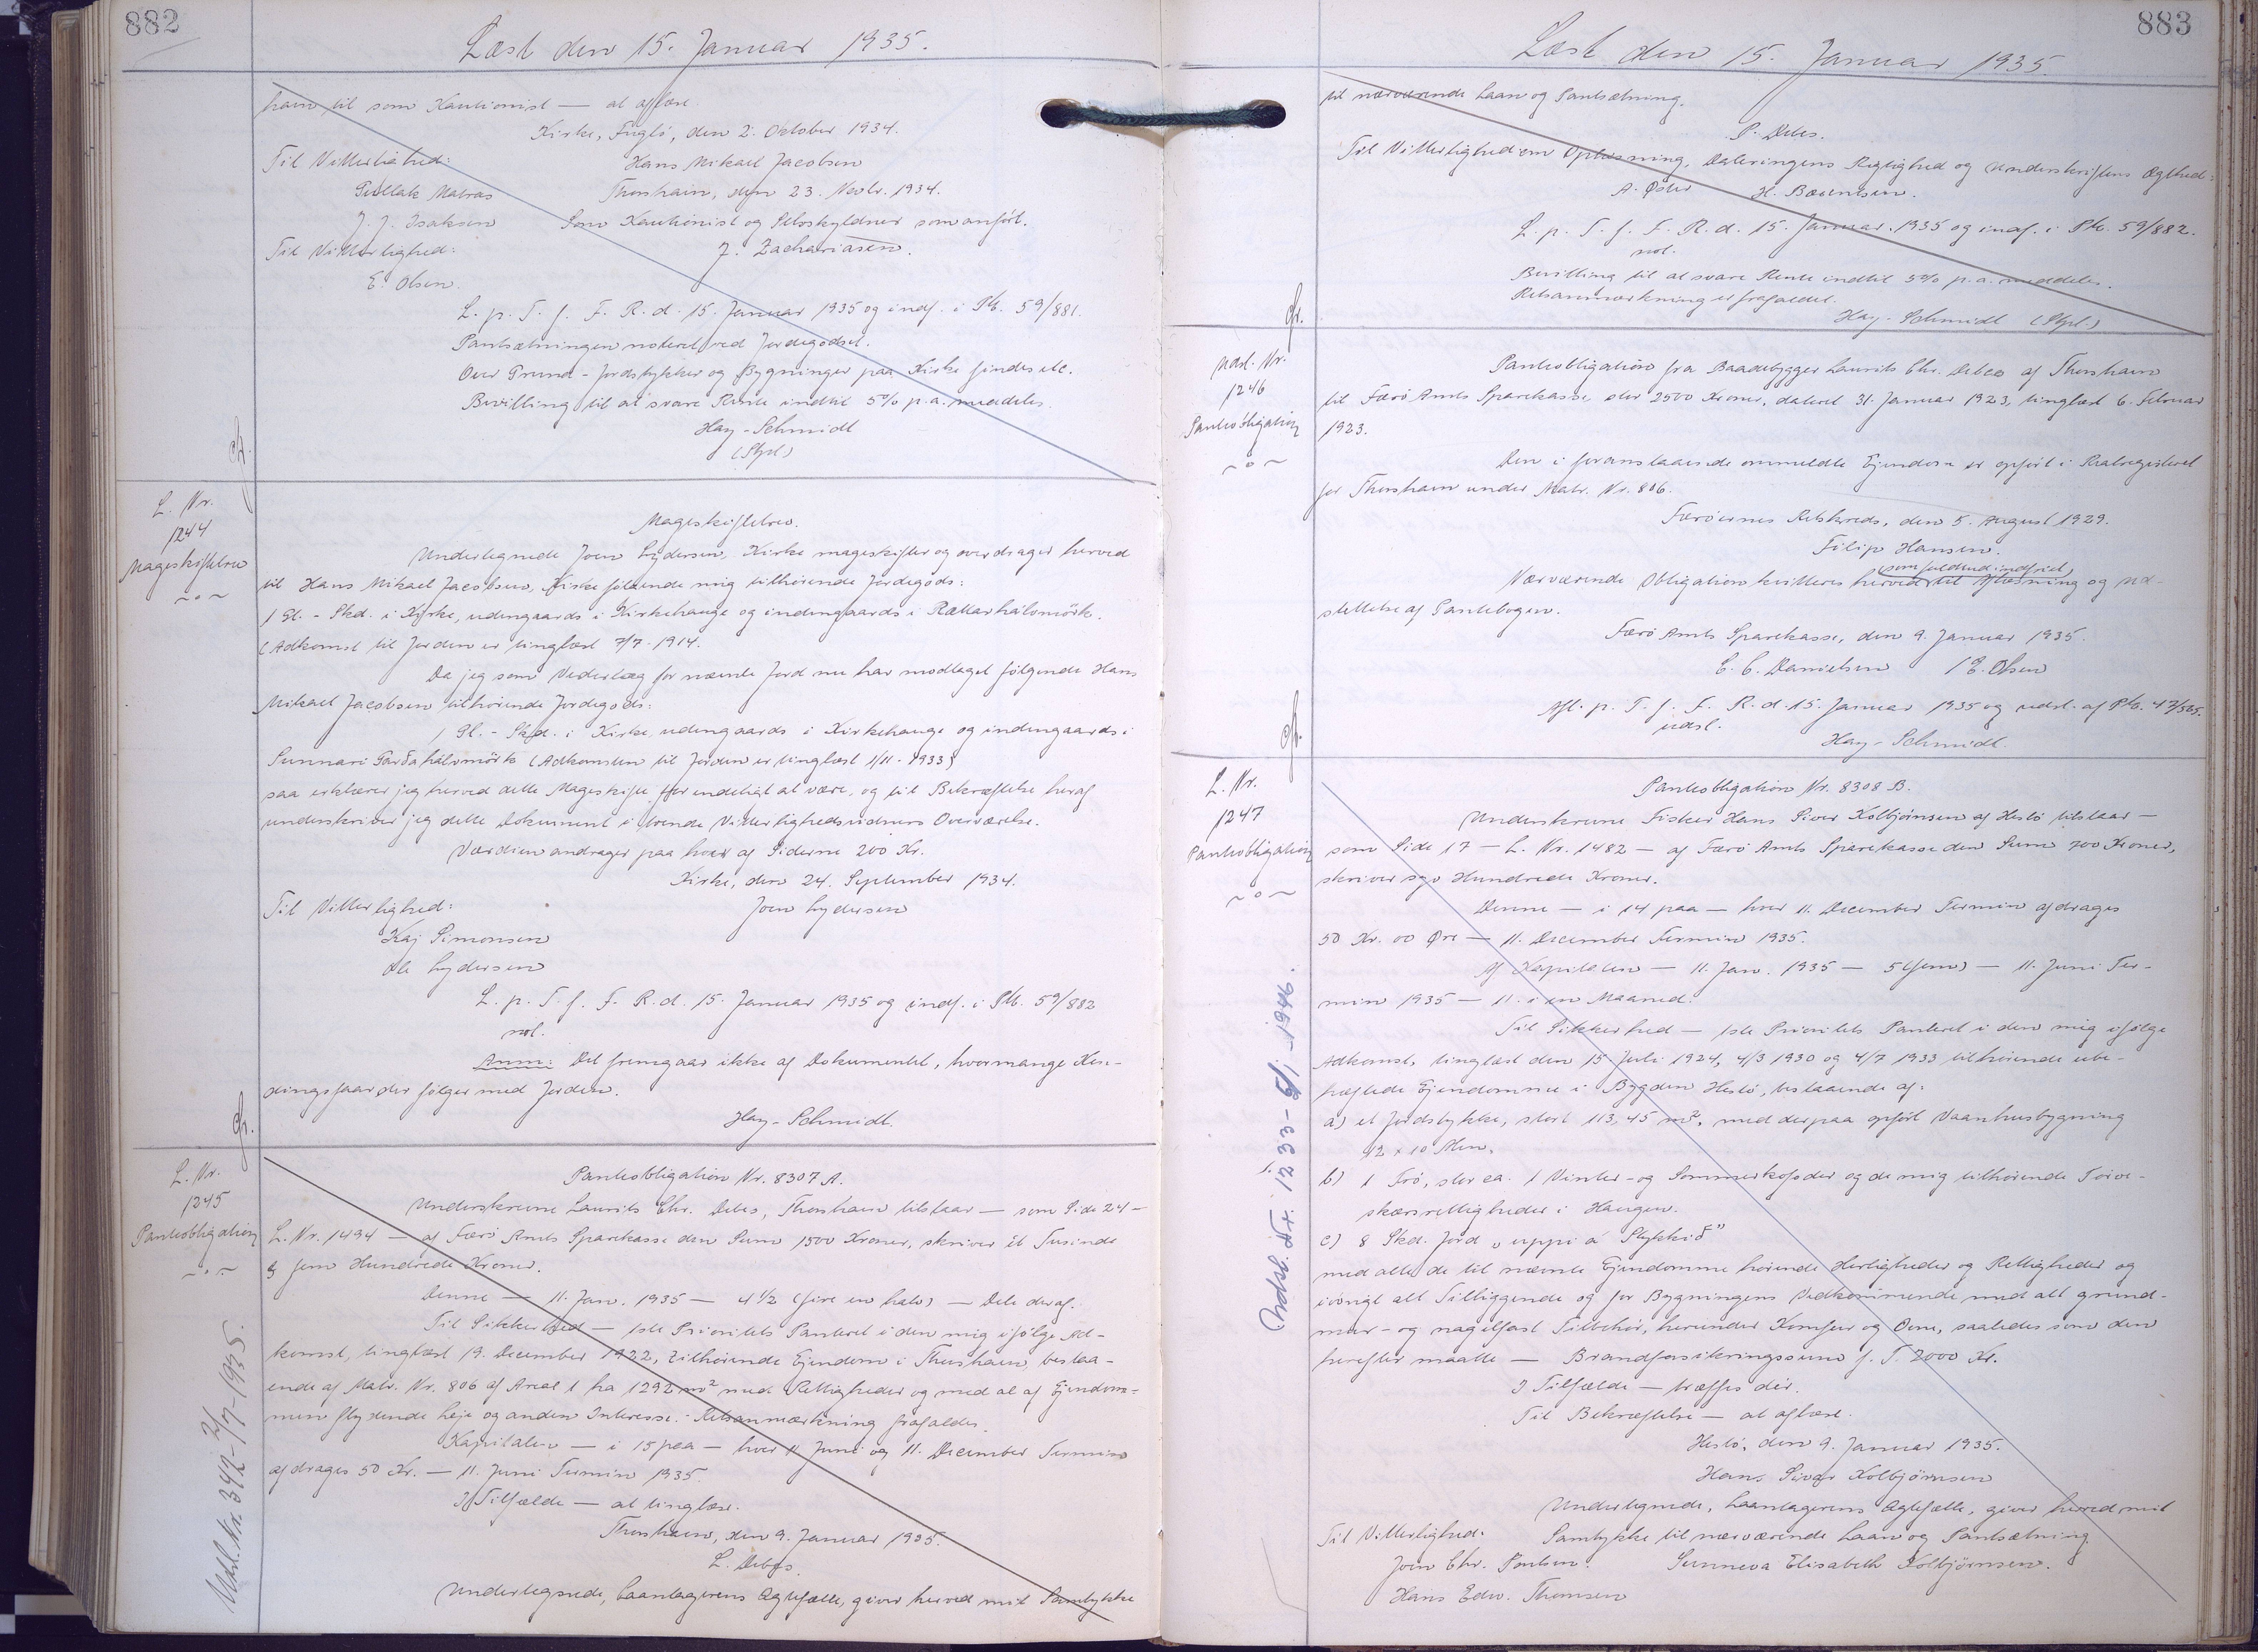 882
Læst den 15. Januar 1935.
ham til som Kautionist — at aflæse.
Kirke, Fuglö, den 2. October 1934.
Til Vitterlighed: Hans Mikael Jacobsen
Matras Thorshavn, den 23. Novbr. 1934.
J. J. Isaksen Som Kautionist og Selvskyldner som anfört.
Til Vitterlighed: J. Zachariasen.
E. Olsen.
L. p. T. f. F. R. d. 15. Januar 1935 og indf. i Pb. 59/881.
Pantsætningen noteret ved Jordegodset.
Over Grund-Jordstykker og Bygninger paa Kirke findes etc.
Bevilling til at svare Rente indtil 5% p.a. meddeles.
Hay-Schmidt
(Stpl.)
L. Nr.
1244
Mageskiftebrev
~o~
Mageskiftebrev.
Undertegnede Joen Lydersen, Kirke mageskifter og overdrager herved
til Hans Mikael Jacobsen, Kirke fölgende mig tilhörende Jordegods:
1 Gl. - Skd. i Kirke, udengaards i Kirkehauge og indengaards i Rættarhálsmörk.
(Adkomst til Jorden er tinglæst 7/7-1914.
Da jeg som Vederlag for nævnte Jord nu har modtaget fölgende Hans
Mikael Jacobsen tilhörende Jordegods:
1 Gl. - Skd. i Kirke, udengaards i Kirkehauge og indengaards i
Sunnari Garðahálsmörk (Adkomsten til Jorden er tinglæst 1/11-1933)
saa erklærer jeg herved dette Mageskifte for endeligt at være, og til Bekræftelse heraf
underskriver jeg dette Dokument i tvende Vitterlighedsvidners Overværelse.
Værdien andrager paa hver af Siderne 200 Kr.
Kirke, den 24. September 1934.
Til Vitterlighed: Joen Lydersen
Kaj Simonsen
Ole Lydersen
L. p. T. f. F. R. d. 15. Januar 1935 og indf. i Pb. 59/882
not.
Anm: Det fremgaar ikke af Dokumentet, hvormange
der fölger med Jorden.
Hay-Schmidt.
L. Nr.
1245
Pantobligation
~o~
Udsl. Nr. 342-2/7-1935.
Pantobligation Nr. 8307 A.
Underskrevne Laurits Chr. Debes, Thorshavn tilstaar — som Side 24 —
L. Nr. 1494 — af Færö Amts Sparekasse den Sum 1500 Kroner, skriver Et Tusinde
og fem Hundrede Kroner.
Denne — 11. Jan. 1935 — 4 1/2 (fire en halv) — Dele deraf.
Til Sikkerhed — 1ste Prioritets Panteret i den mig ifölge Ad-
komst, tinglæst 19. December 1922, tilhörende Ejendom i Thorshavn, bestaa-
ende af Matr. Nr. 806 af Areal 1 ha 1292 m² med Rettigheder og med al af Ejendom-
men flydende Leje og anden Interesse. Retsanmærkning frafaldes.
Kapitalen — i 15 paa — hver 11. Juni og 11. December Termin
afdrages 50 Kr. — 11. Juni Termin 1935.
I Tilfælde — at tinglæse.
Thorshavn, den 9. Januar 1935.
L. Debes.
Undertegnede, Laantagerens Ægtefælle, giver herved mit Samtykke
883
Læst den 15. Januar 1935.
til nærværende Laan og Pantsætning.
P. Debes.
Til Vitterlighed om Oplæsning, Dateringens Rigtighed og Underskriftens Ægthed:
A. Öster H. Bærentsen.
L. p. T. f. F. R. d. 15. Januar. 1935 og indf. i Pb. 59/882.
not.
Bevilling til at svare Rente indtil 5% p.a. meddeles.
Retsanmærkning er frafaldet.
Hay-Schmidt (Stpl.)
Udsl. Nr.
1246
Pantobligation
~o~
Pantobligation fra Baadebygger Laurits Chr. Debes af Thorshavn
til Færö Amts Sparekasse, stor 2500 Kroner, dateret 31. Januar 1923, tinglæst 6. Februar
1923.
Den i foranstaaende ommeldte Ejendom er opfört i Realregisteret
for Thorshavn under Matr. Nr. 806.
Færöernes Retskreds, den 5. August 1929.
Filip Hansen.
(som fuldtud indfriet)
Nærværende Obligation kvitteres herved til Aflæsning og Ud-
slettelse af Pantebogen.
Færö Amts Sparekasse, den 9. Januar 1935.
C. C. Danielsen / E. Olsen
Afl. p. T. f. F. R. d. 15. Januar 1935 og udsl. af Pb. 47/565.
udsl.
Hay-Schmidt.
L. Nr.
1247
Pantobligation
~o~
Udsl. Nr. 1233-5/1-1946.
Pantobligation Nr. 8308 B.
Underskrevne Fisker Hans Siver Kolbjörnsen af Hestö tilstaar —
som Side 17 — L. Nr. 1482 — af Færö Amts Sparekasse den Sum 700 Kroner,
skriver syv Hundrede Kroner.
Denne — i 14 paa — hver 11. December Termin afdrages
50 Kr. 00 Øre — 11. December Termin 1935.
Af Kapitalen — 11. Jan. 1935 — 5 (fem) — 11. Juni Ter-
min 1935 — 11. i en Maaned.
Til Sikkerhed — 1ste Prioritets Panteret i den mig ifölge
Adkomst, tinglæst den 15. Juli 1924, 4/3 1930 og 4/7 1933 tilhörende ube-
hæftede Ejendomme i Bygden Hestö, bestaaende af:
a) et Jordstykke, stort 113,45 m², med derpaa opfört Vaanhusbygning
12 x 10 Alen.
b) 1 Trö, stor ca. 1 Vinter- og Sommerkofoder og de mig tilhörende Törve-
skærsrettigheder i Haugen.
c) 8 Skd. Jord „uppi á Stykkið"
med alle de til nævnte Ejendomme hörende Herligheder og Rettigheder og
iövrigt alt Tilliggende og for Bygningens Vedkommende med alt grund-
mur- og nagelfast Tilbehör, herunder Komfur og Ovne, saaledes som den
herefter maatte — Brandforsikringssum f. T. 2000 Kr.
I Tilfælde — træffes dér.
Til Bekræftelse — at aflæse.
Hestö, den 9. Januar 1935.
Hans Siver Kolbjörnsen
Undertegnede, Laantagerens Ægtefælle, giver herved mit
Til Vitterlighed: Samtykke til nærværende Laan og Pantsætning.
Joen Chr. Poulsen. Sunneva Elisabeth Kolbjörnsen.
Hans Edw. Thomsen